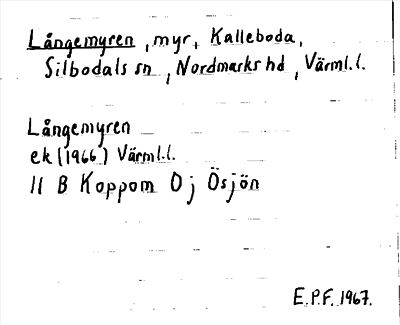 Långemyren, myr, Kalleboda,
Silbodals sn, Nordmarks hd, Värml.l.
Långemyren
ek (1966) Värml.l.
11 B Koppom 0 j Ösjön
E.P.F. 1967.